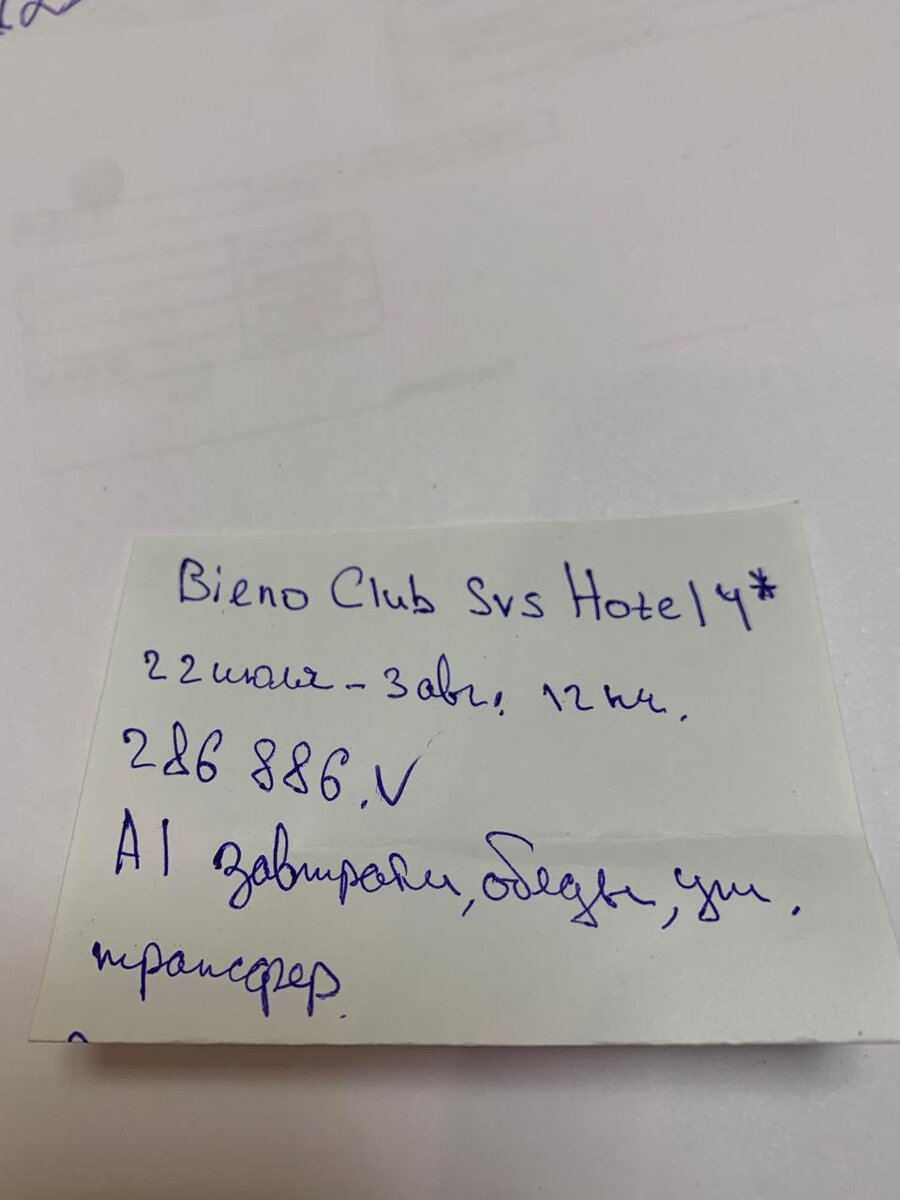 Bieno Club Svs Hotel 4*
22 июля - 3 авг. 12 нч.
286 886. V
AI завтраки, обеды, уж.
трансфер.